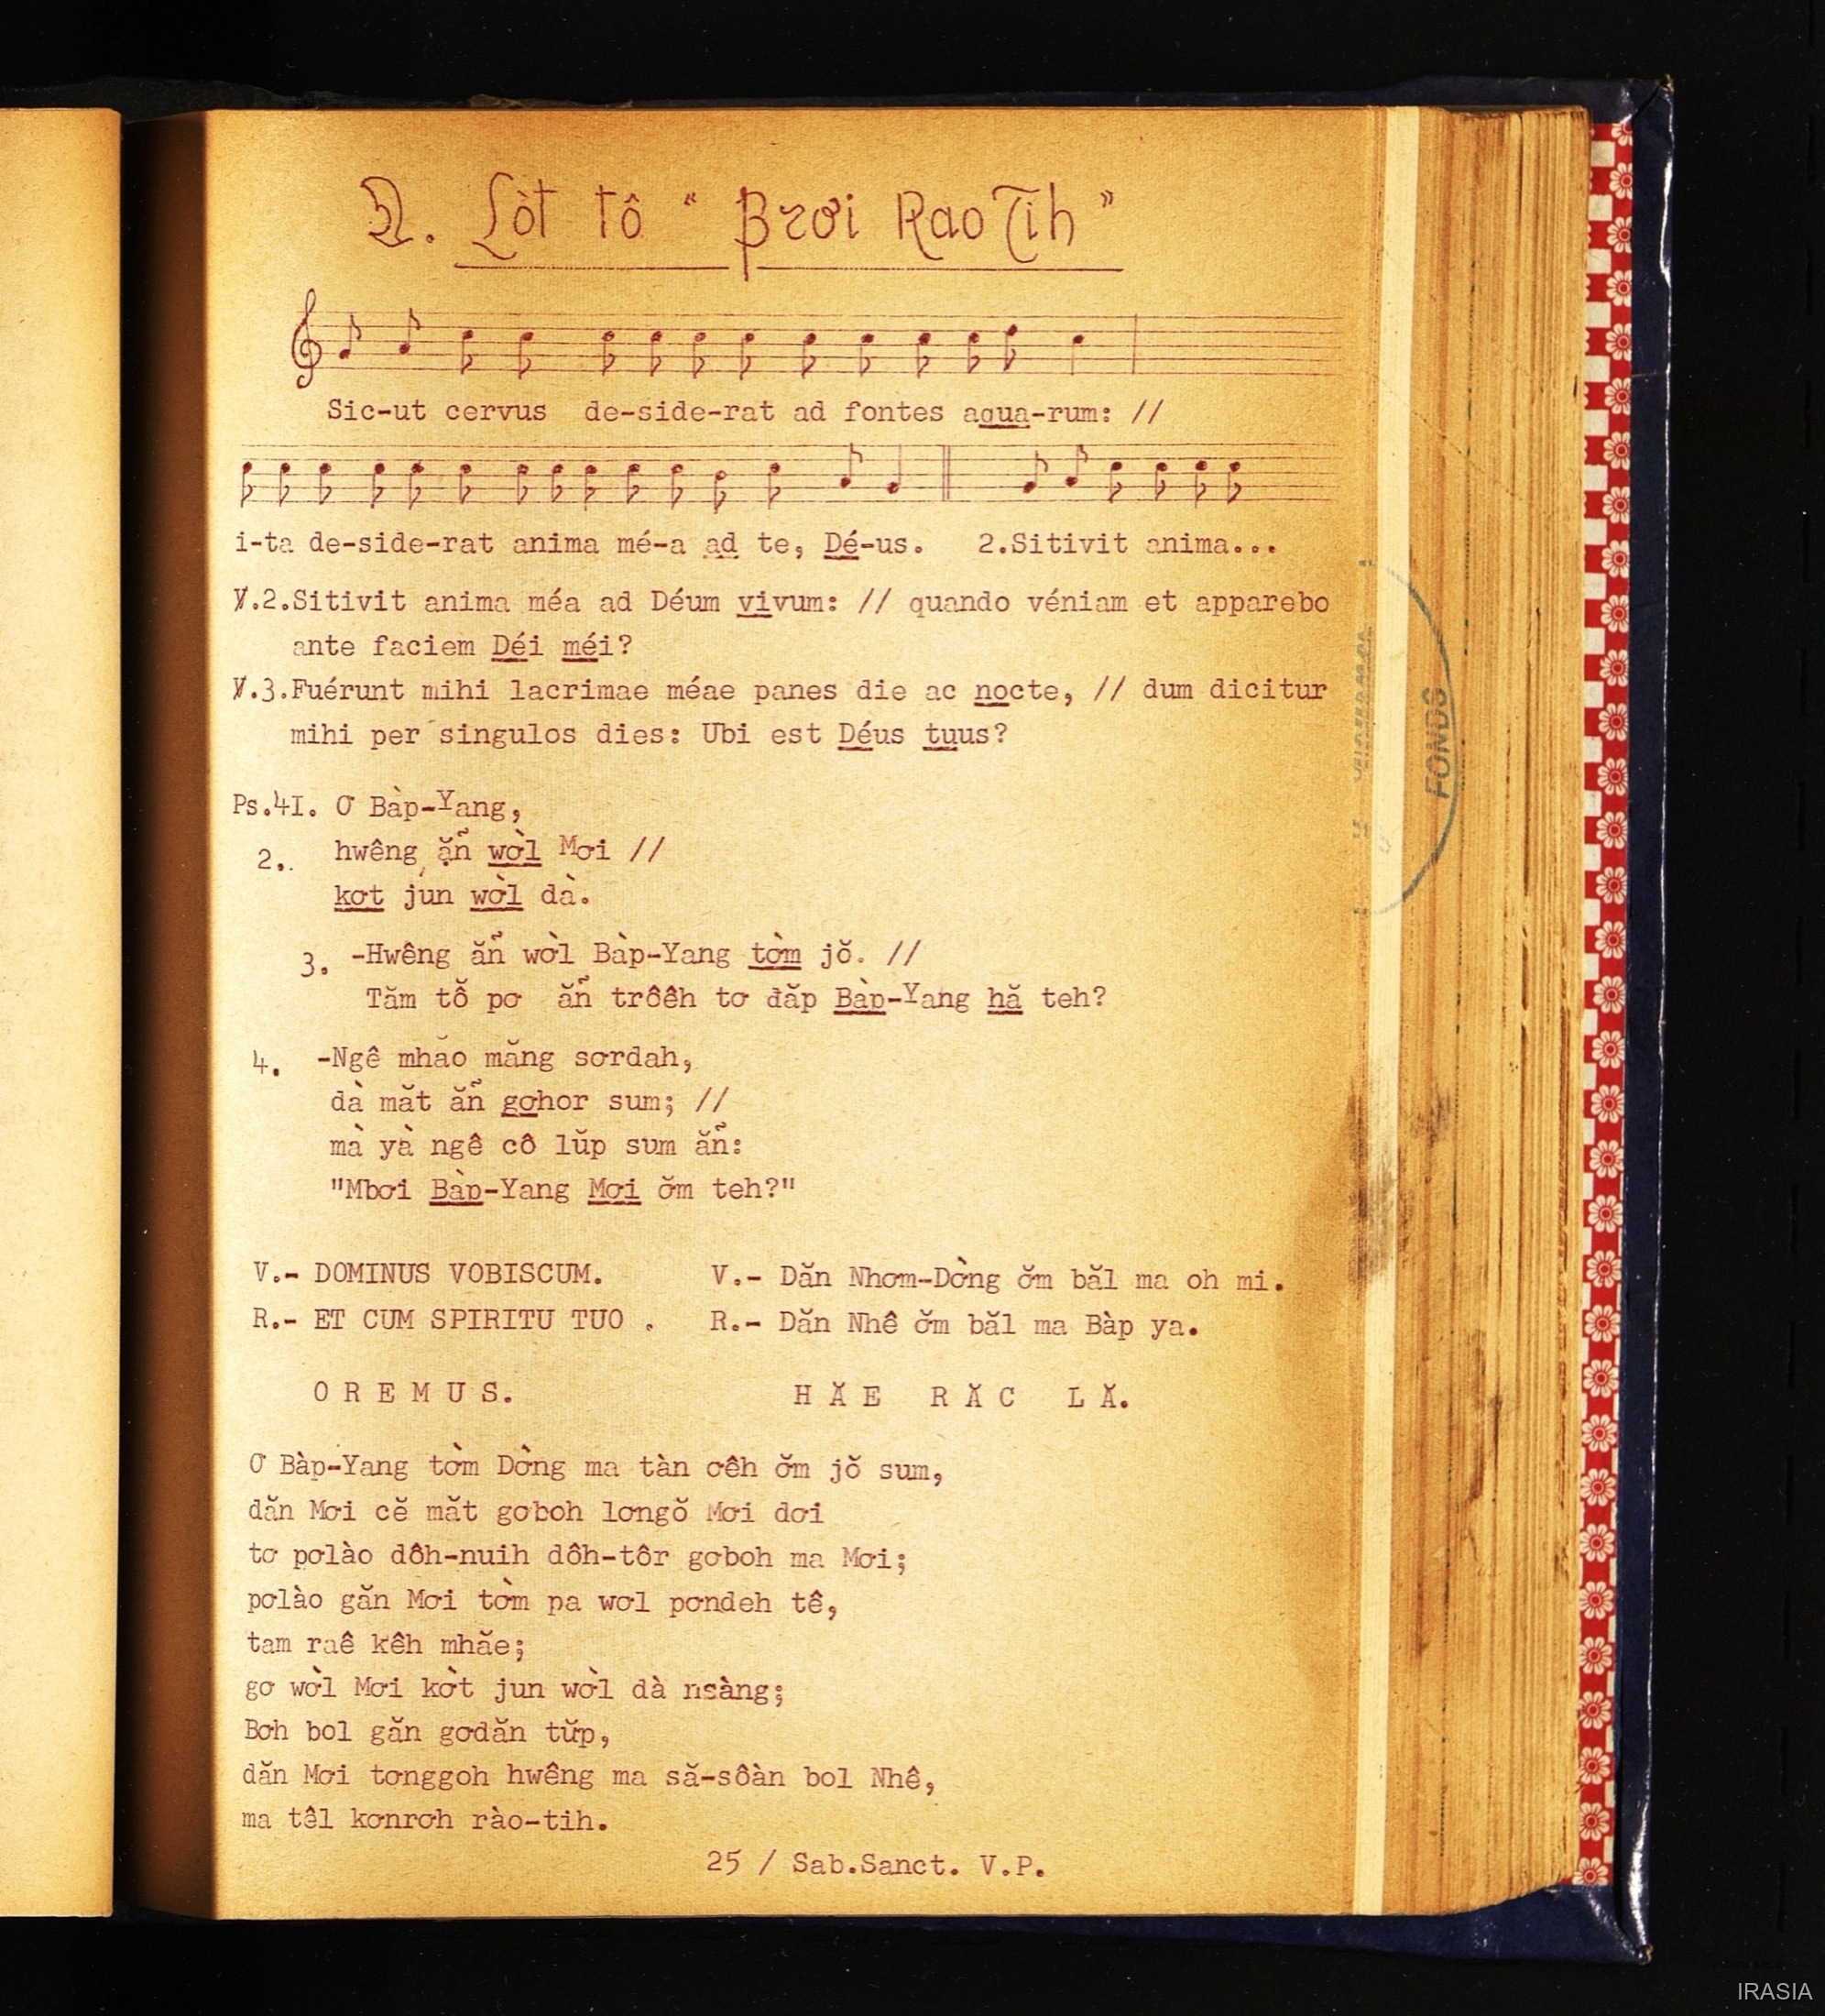 2. Lòt tô " Brơi Rao Tih "
Sic-ut cervus de-side-rat ad fontes aqua-rum: //
i-ta de-side-rat anima mé-a ad te, Dé-us. 2.Sitivit anima...
℣.2.Sitivit anima méa ad Déum vivum: // quando véniam et apparebo
ante faciem Déi méi?
℣.3.Fuérunt mihi lacrimae méae panes die ac nocte, // dum dicitur
mihi per singulos dies: Ubi est Déus tuus?
Ps.4I. Ơ Bàp-Yang,
2. hwêng ăñ wờl Mơi //
kơt jun wờl dà.
3. -Hwêng ăñ wờl Bàp-Yang tờm jŏ. //
Tăm tô̆ pơ ăñ trôêh tơ đăp Bàp-Yang hă teh?
4. -Ngê mhăo măng sơrdah,
dà măt ăñ gơhor sum; //
mà yà ngê cô lŭp sum ăñ:
"Mbơi Bàp-Yang Mơi ơ̆m teh?"
V.- DOMINUS VOBISCUM. V.- Dăn Nhơm-Dờng ơ̆m băl ma oh mi.
R.- ET CUM SPIRITU TUO . R.- Dăn Nhê ơ̆m băl ma Bàp ya.
O R E M U S. H Ă E R Ă C L Ă.
Ơ Bàp-Yang tờm Dờng ma tàn ơêh ơ̆m jŏ sum,
dăn Mơi cĕ măt gơboh lơngŏ Mơi dơi
tơ pơlào dôh-nuih dôh-tôr gơboh ma Mơi;
pơlào găn Mơi tờm pa wơl pơndeh tê,
tam raê kêh mhăe;
gơ wờl Mơi kờt jun wờl dà nsàng;
Bơh bol găn gơdăn tŭp,
dăn Mơi tơnggoh hwêng ma să-sôàn bol Nhê,
ma têl kơnrơh rào-tih.
25 / Sab.Sanct. V.P.
FONDS
IRASIA